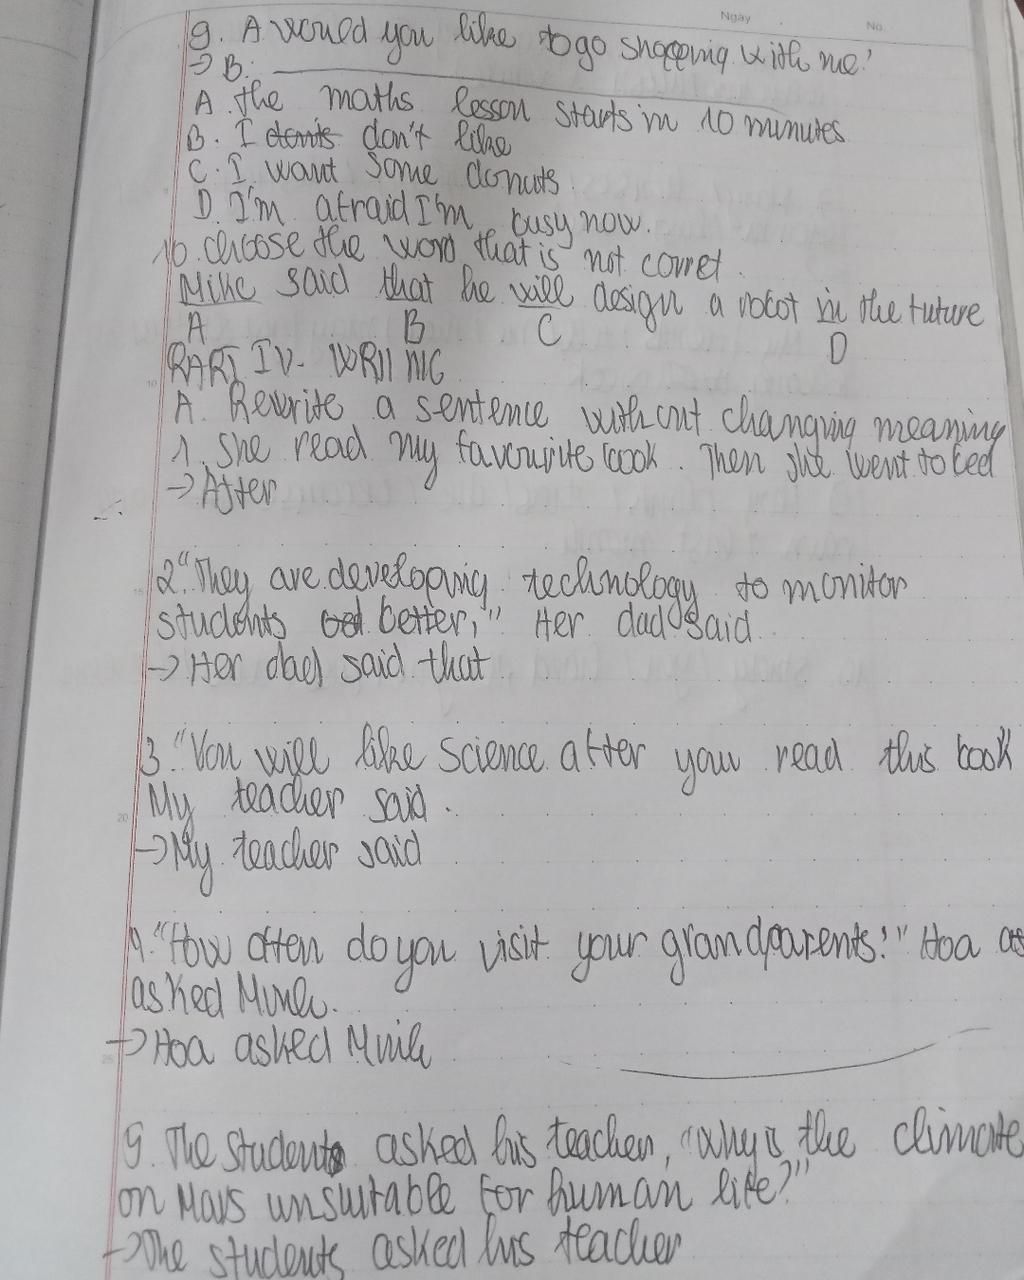 Ngày
No.
9. A would you like to go shopping with me?
→ B:
A. the maths lesson starts in 10 minutes
B. I donts don't like
C. I want some donuts.
D. I'm afraid I'm busy now.
10. choose the word that is not corret.
Mike said that he will design a robot in the future
A B C D
PART IV - WRITING
A. Rewrite a sentence without changing meaning
1. She read my favourite book. Then she went to bed
→ After
2. "They are developing technology to monitor
students bet better," Her dad said
→ Her dad said that
3. "You will like science after you read this book"
My teacher said.
→ My teacher said
4. "How often do you visit your grandparents?" Hoa as
asked Minh.
→ Hoa asked Minh
5. The students asked his teacher, "why is the climate
on Mars unsuitable for human life?"
→ The students asked his teacher